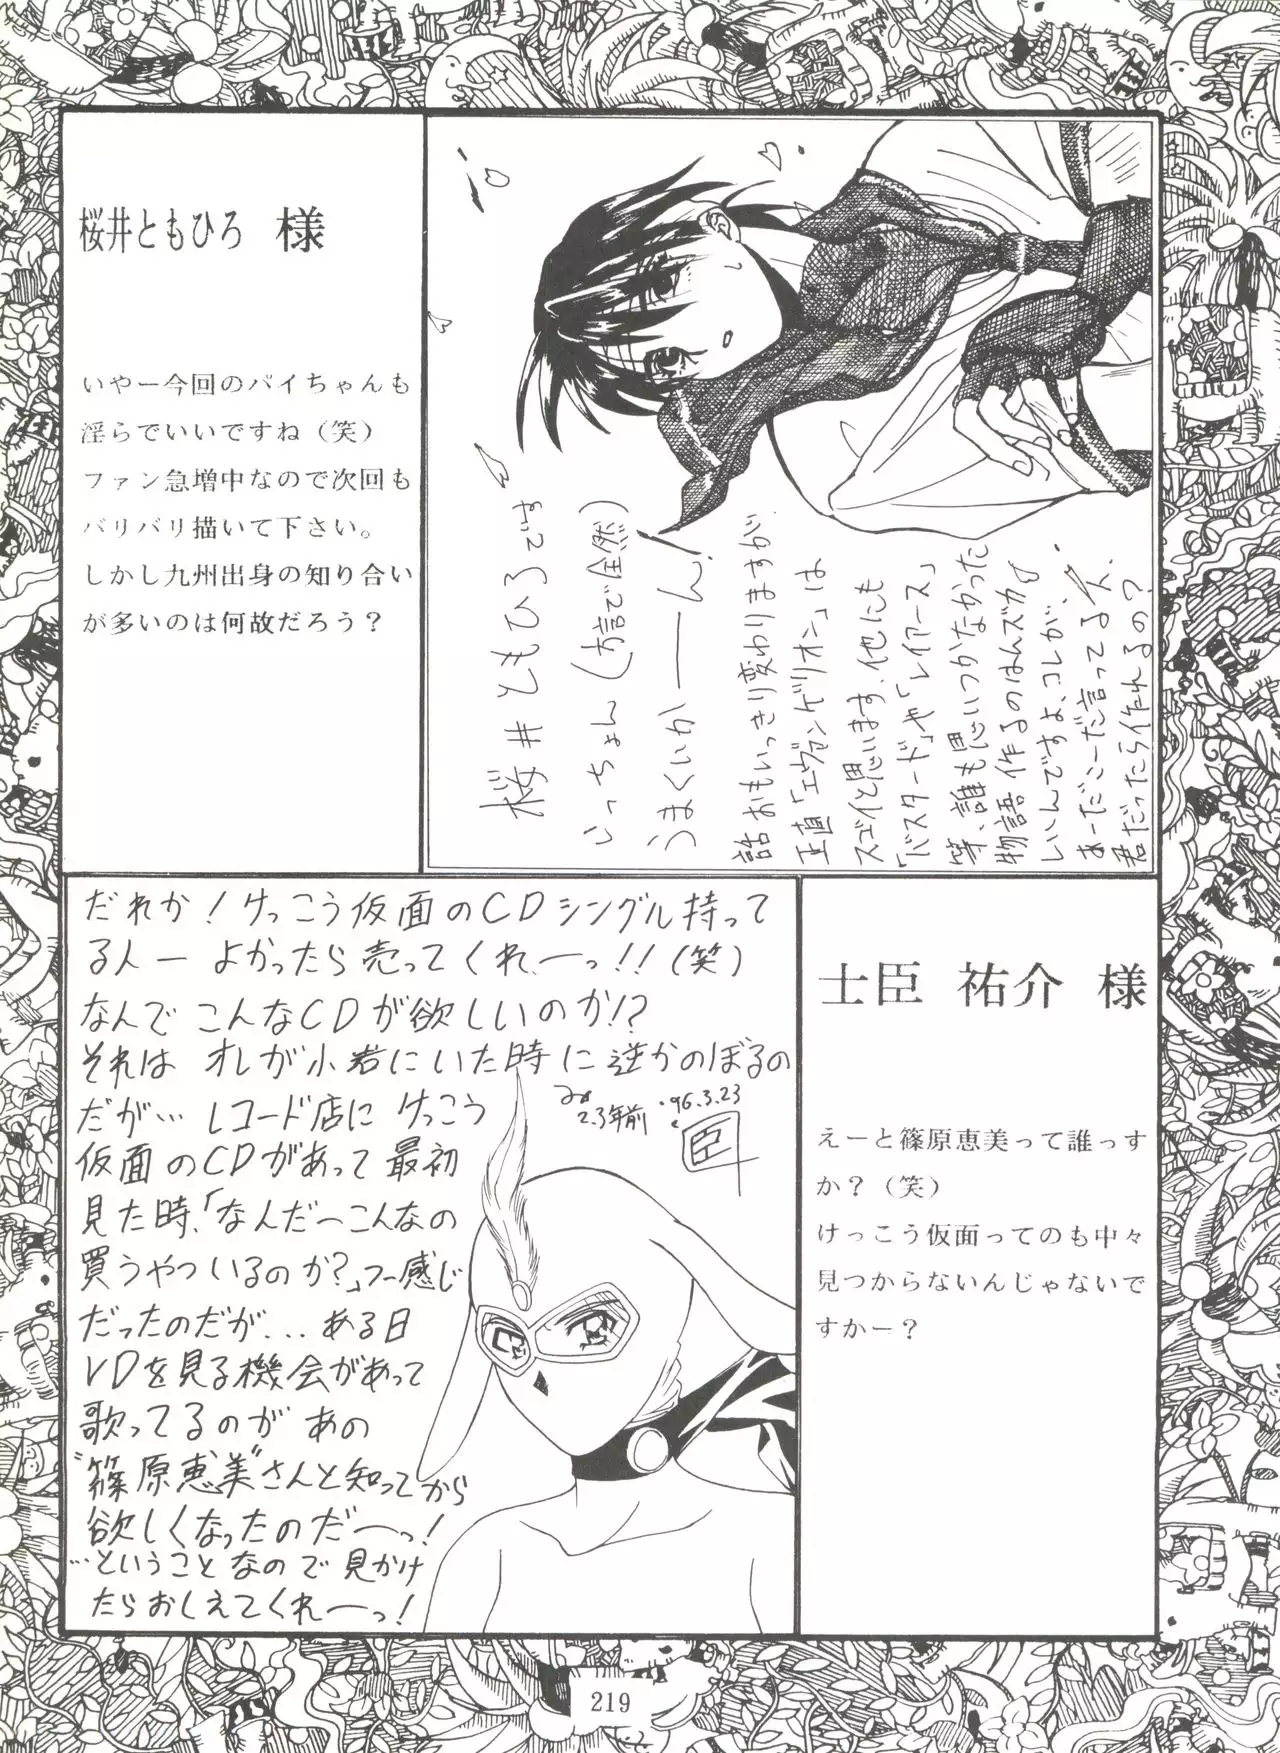 桜井ともひろ 様
いやー今回のパイちゃんも
淫らでいいですね（笑）
ファン急増中なので次回も
バリバリ描いて下さい。
しかし九州出身の知り合い
が多いのは何故だろう？
桜井ともひろです
いっちょん（方言で全然）
うまくいかーーん!
話おもいっきり変わりますが
正直「エヴァンゲリオン」は
スゴイと思います、他にも
「バスタード」や「レイアース」
等、誰も思いつかなかった
物語作るのはムズカし
いんですよ、コレが、
あーだこーだ言ってる人、
君だったら作れるの？
だれか！けっこう仮面のCDシングル持って
る人ー よかったら売ってくれーっ!!（笑）
なんで こんなCDが欲しいのか!?
それは オレが小倉にいた時に逆かのぼるの
2.3年前
'96.3.23
臣
だが… レコード店に けっこう
仮面のCDがあって 最初
見た時、「なんだーこんなの
買うやついるのか?」フー感じ
だったのだが... ある日
LDを見る機会があって
歌ってるのが あの
"篠原恵美"さんと知ってから
欲しくなったのだーっ!
…ということなので 見かけ
たらおしえてくれーっ!
士臣 祐介 様
えーと篠原恵美って誰っす
か？（笑）
けっこう仮面ってのも中々
見つからないんじゃないで
すかー？
219